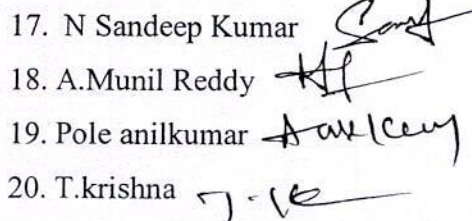 17. N Sandeep Kumar
18. A.Munil Reddy
19. Pole anilkumar
20. T.krishna